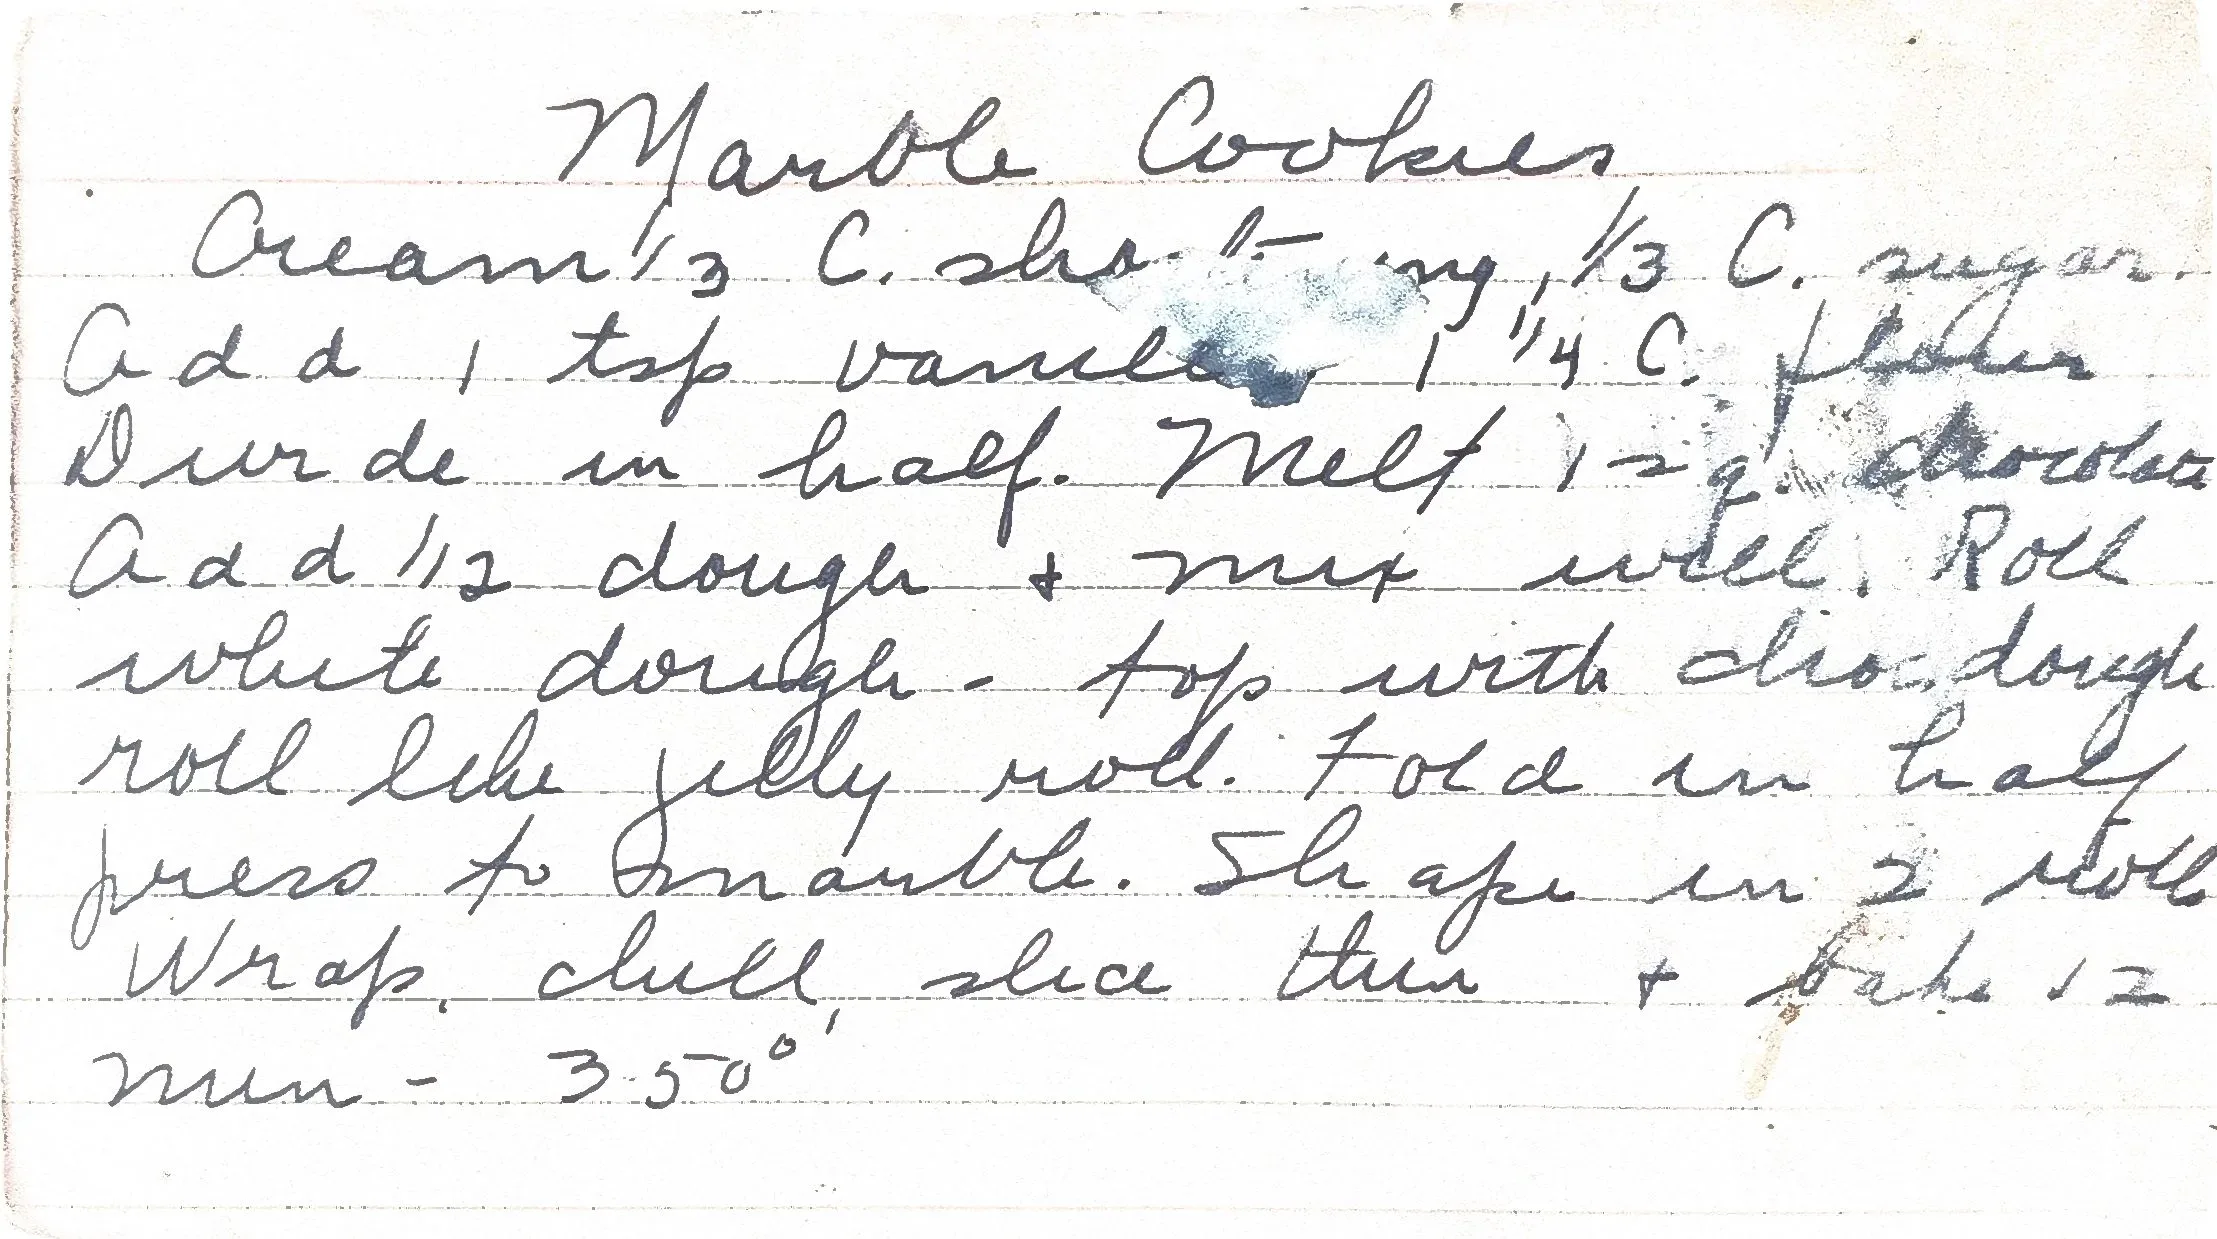 Marble Cookies
Cream 1/3 C. shortning, 1/3 C. sugar.
Add 1 tsp vanilla, 1 1/4 C. flour
Divide in half. Melt 1 sq. chocolate
Add 1/2 dough + mix well. Roll
white dough - top with choc. dough
roll like jelly roll. Fold in half
press to marble. Shape in 2 rolls
Wrap, chill, slice thin + bake 12
min - 350°